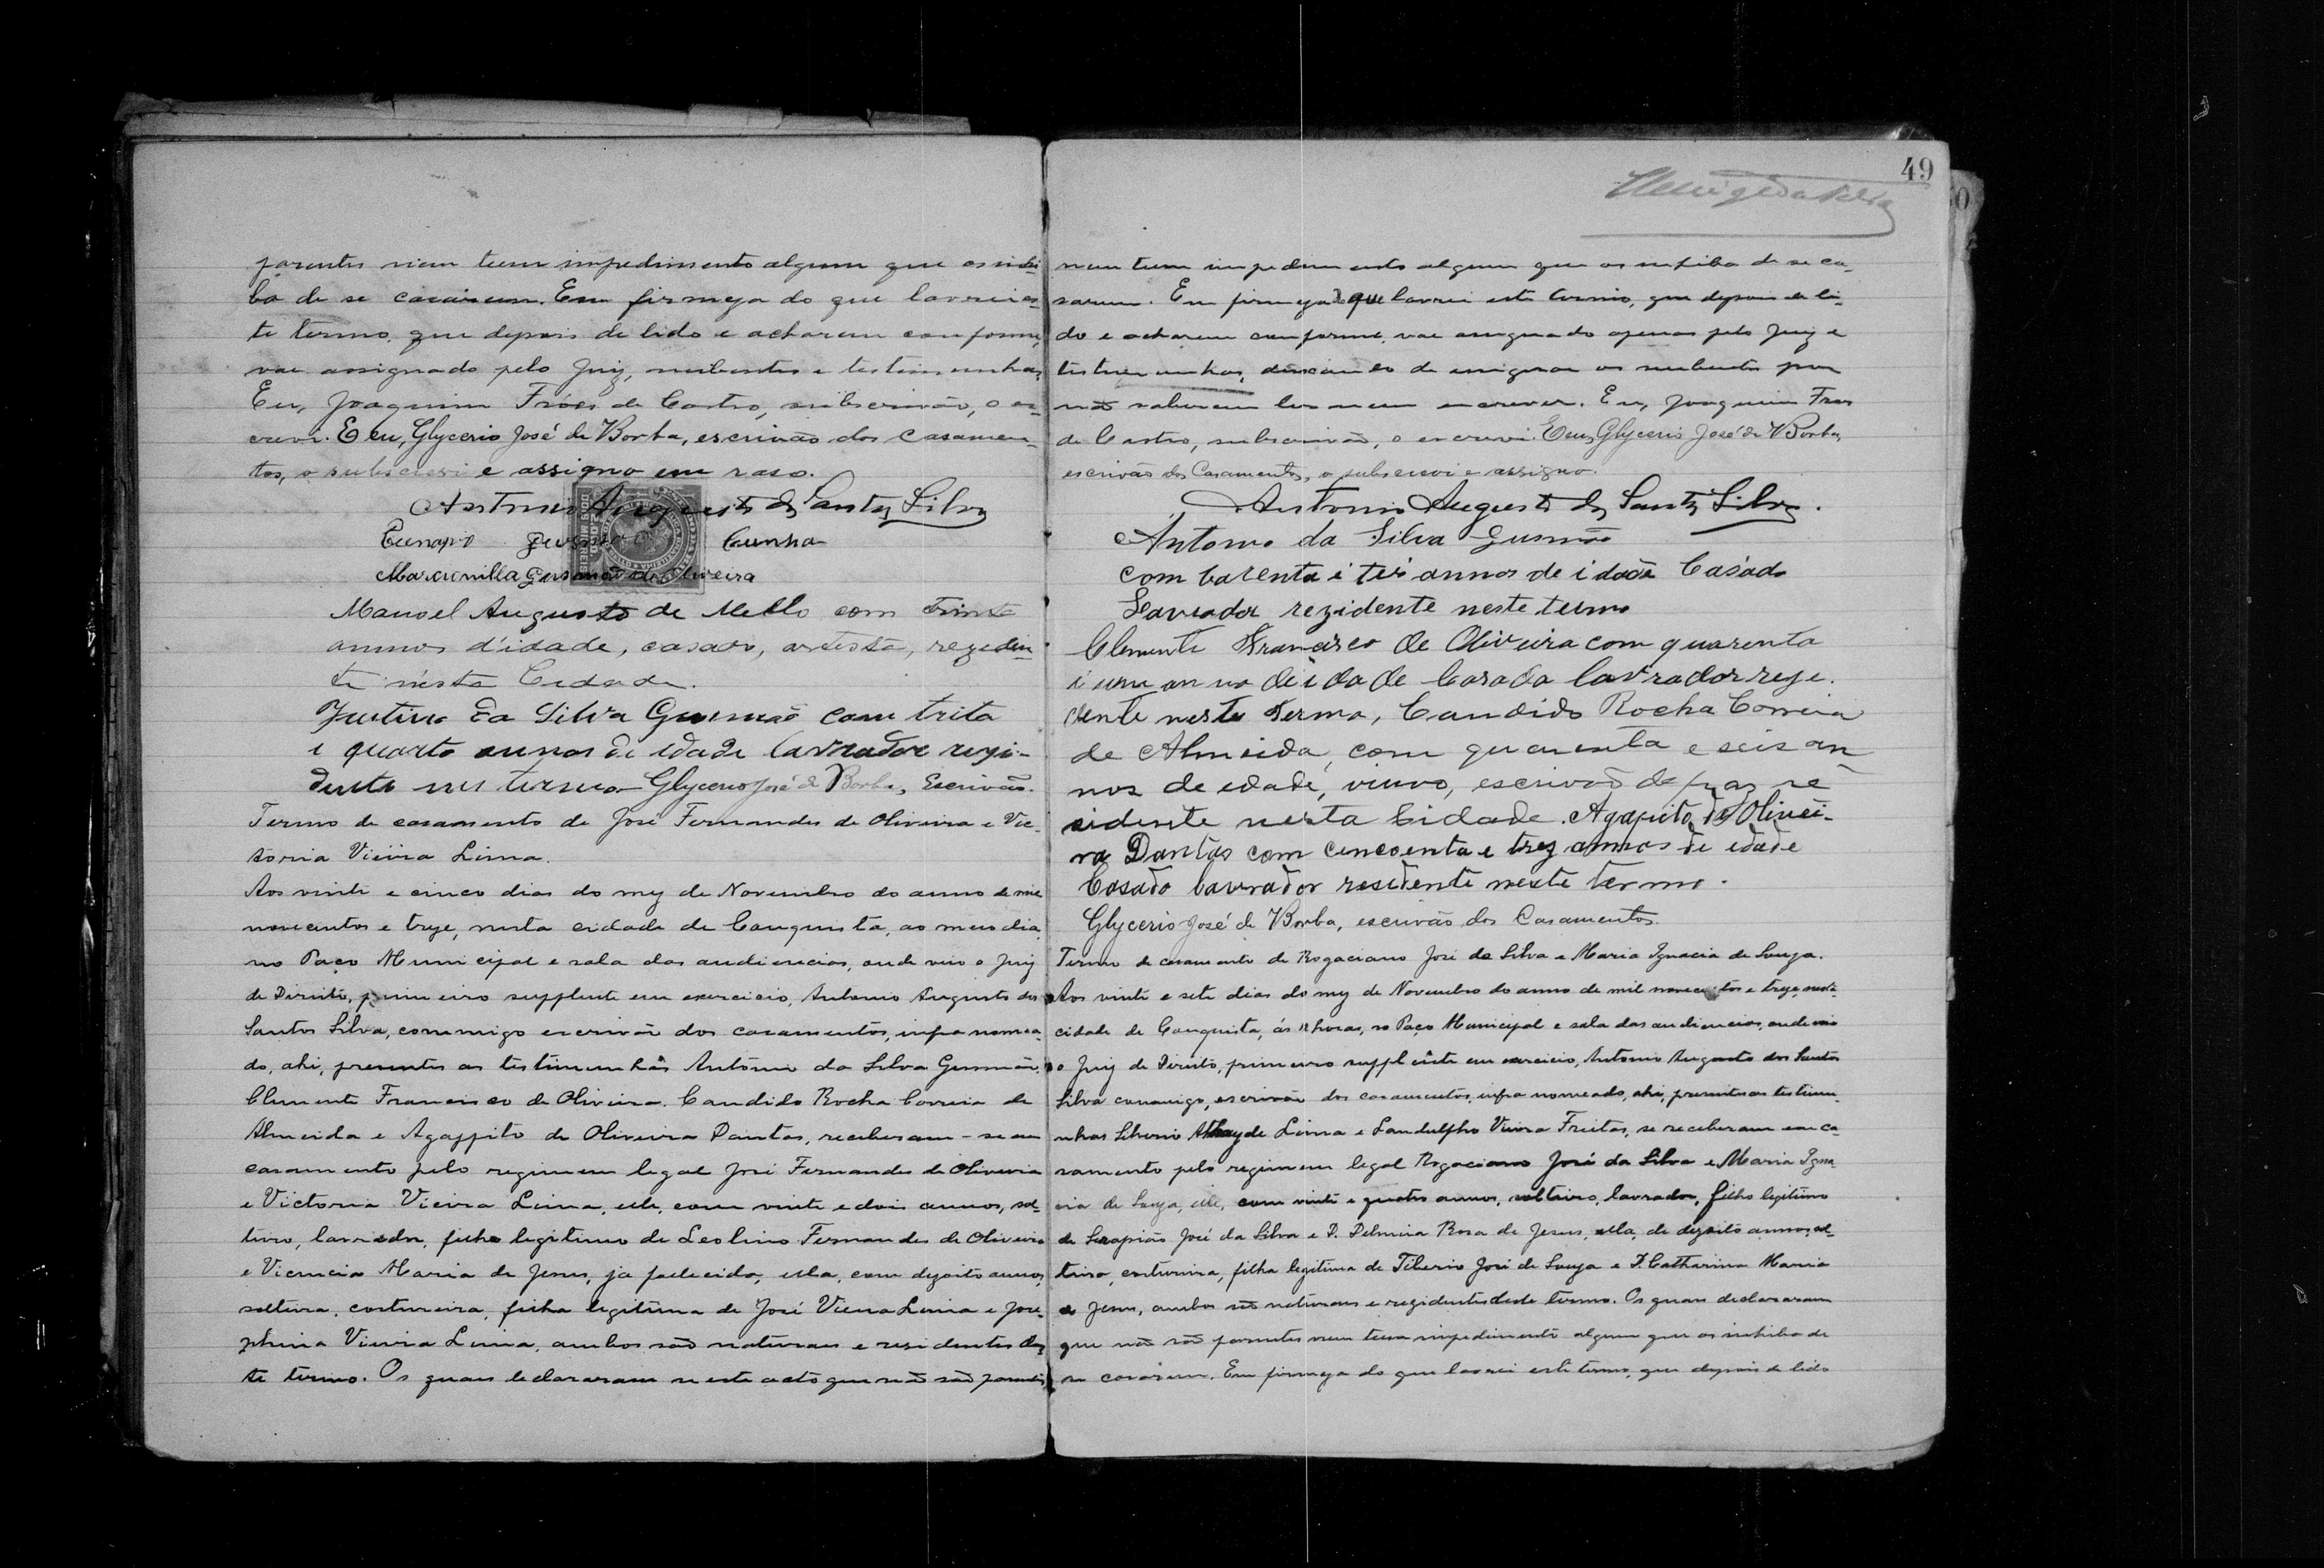 parentes nem teem impedimento algum que os inhi-
ba de se casarem. Em firmeza do que lavrei es-
te termo, que depois de lido e acharem conforme,
vae assignado pelo Juiz, nubentes e testimunhas,
Eu, Joaquim Fróes de Castro, subscrivão, o es-
crevi. E eu, Glycerio José de Borba, escrivão dos casamen-
tos, o subscrevi e assigno em raso.
Antonio Augusto dos Santos Silva
Cunha
Marcionilla Gusmão de Oliveira
Manoel Augusto de Mello com Trinta
annos d'idade, casado, artista, rezeden-
te nésta Cidade.
Justino da Silva Gusmão com trita
e quarto annos de idade lavrador rezi-
dente nes termo Glycerio José de Borba, Escrivão.
Termo de casamento de José Fernandes de Oliveira e Vic-
toria Vieira Lima.
Aos vinte e cinco dias do mez de Novembro do anno de mil
novecentos e treze, nesta cidade de Conquista, ao meio dia,
no Paço Municipal e sala das audiencias, onde veio o Juiz
de Direito, primeiro supplente em exercicio, Antonio Augusto dos
Santos Silva, commigo escrivão dos casamentos, infra nomea-
do, ahi, presentes as testimunhas Antonio da Silva Gusmão,
Clemente Francisco de Oliveira, Candido Rocha Correia de
Almeida e Agappito de Oliveira Dantas, receberam-se em
casamento pelo regimem legal José Fernandes de Oliveira
e Victoria Vieira Lima, elle, com vinte e dois annos, sol-
teiro, lavrador, filho legitimo de Leolino Fernandes de Oliveira
e Vicencia Maria de Jesus, ja fallecida, ella, com dezoito annos,
solteira, costureira, filha legitima de José Vieira Lima e Jose-
phina Vieira Lima, ambos são naturaes e residentes des-
te termo. Os quaes declararam neste acto que não são parentes
49
nem teem impedimento algum que os inhiba de se ca-
sarem. Em firmeza do que lavrei este termo, que depois de li-
do e acharem conforme, vae assignado apenas pelo Juiz e
testimunhas, deixando de assignar os nubentes por
não saberem ler nem escrever. Eu, Joaquim Froes
de Castro, subscrivão, o escrevi. E eu, Glycerio José de Borba,
escrivão dos Casamentos, o subscrevi e assigno.
Antonio Augusto dos Santos Silva.
Antonio da Silva Gusmão
com carenta i teis annos de idade Casado
Lavrador rezidente neste termo
Clemente Francisco de Oliveira com quarenta
i um anno de idade Casado lavrador reze.
dente neste termo, Candido Rocha Correia
de Almeida, com quarenta e seis an
nos de edade, viuvo, escrivão de paz re
sidente nesta Cidade. Agapito de Olivei-
ra Dantas com cencoenta e trez annos de idade
Casado lavrador residente neste termo.
Glycerio José de Borba, escrivão dos Casamentos.
Termo de casamento de Rogaciano José da Silva e Maria Ignacia de Souza.
Aos vinte e sete dias do mez de Novembro do anno de mil novecentos e treze, nesta
cidade de Conquista, ás 12 horas, no Paço Municipal e sala das audiencias, onde veio
o Juiz de Direito, primeiro supplente em exercicio, Antonio Augusto dos Santos
Silva commigo, escrivão dos casamentos, infra nomeado, ahi, presentes as testimu-
nhas Silverio Athayde Lima e Landulpho Vieira Freitas, se receberam em ca-
samento pelo regimem legal Rogaciano José da Silva e Maria Igna-
cia de Souza, elle, com vinte e quatro annos, solteiro, lavrador, filho legitimo
de Serapião José da Silva e D. Delmira Rosa de Jesus, ella, de dezoito annos, sol-
teira, costureira, filha legitima de Tiberio José de Souza e D. Catharina Maria
de Jesus, ambos são naturaes e rezidentes deste termo. Os quaes declararam
que não são parentes nem teem impedimento algum que os inhiba de
se casarem. Em firmeza do que lavrei este termo, que depois de lido